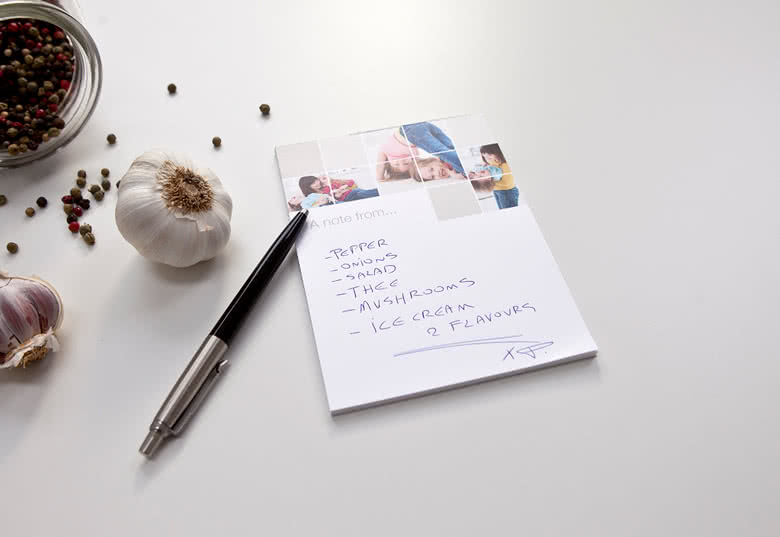 A note from...
- PEPPER
- ONIONS
- SALAD
- THEE
- MUSHROOMS
- ICE CREAM
2 FLAVOURS